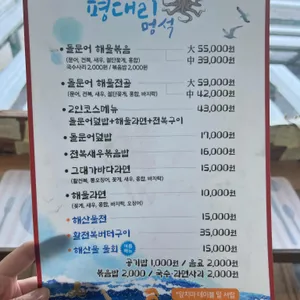 평대리
멍석
• 돌문어 해물볶음 大 55,000원
(문어, 전복, 새우, 활딱새우, 홍합) 中 39,000원
국수사리 2,000원 / 볶음밥 2,000원
• 돌문어 해물전골 大 59,000원
中 42,000원
• 2인코스메뉴 43,000원
돌문어덮밥+해물라면+전복구이
• 돌문어덮밥 17,000원
• 전복새우볶음밥 16,000원
• 그대가바다라면 15,000원
• 해물라면 10,000원
• 해산물전 15,000원
• 활전복버터구이 35,000원
• 해산물 물회 15,000원
공기밥 1,000원 / 음료 2,000원
볶음밥 2,000 / 국수·라면사리 2,000원